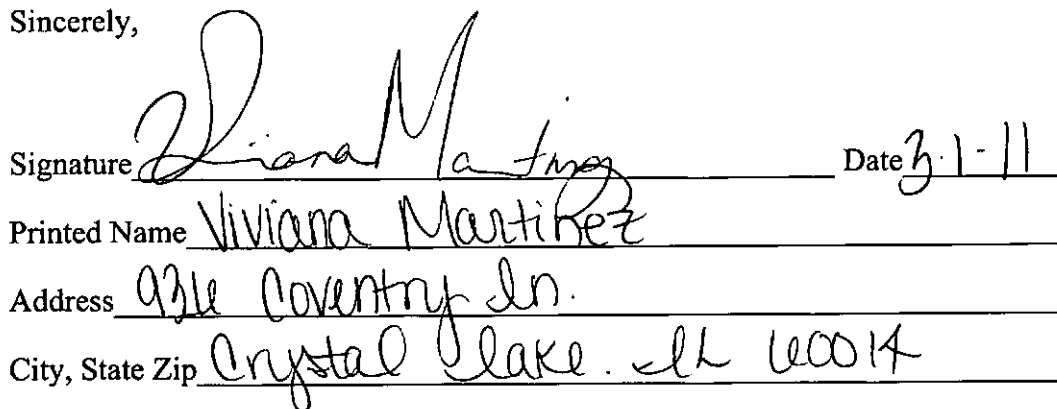 Sincerely,
Signature Viviana Martinez Date 3-1-11
Printed Name Viviana Martinez
Address 936 Coventry Ln.
City, State Zip Crystal Lake. IL 60014